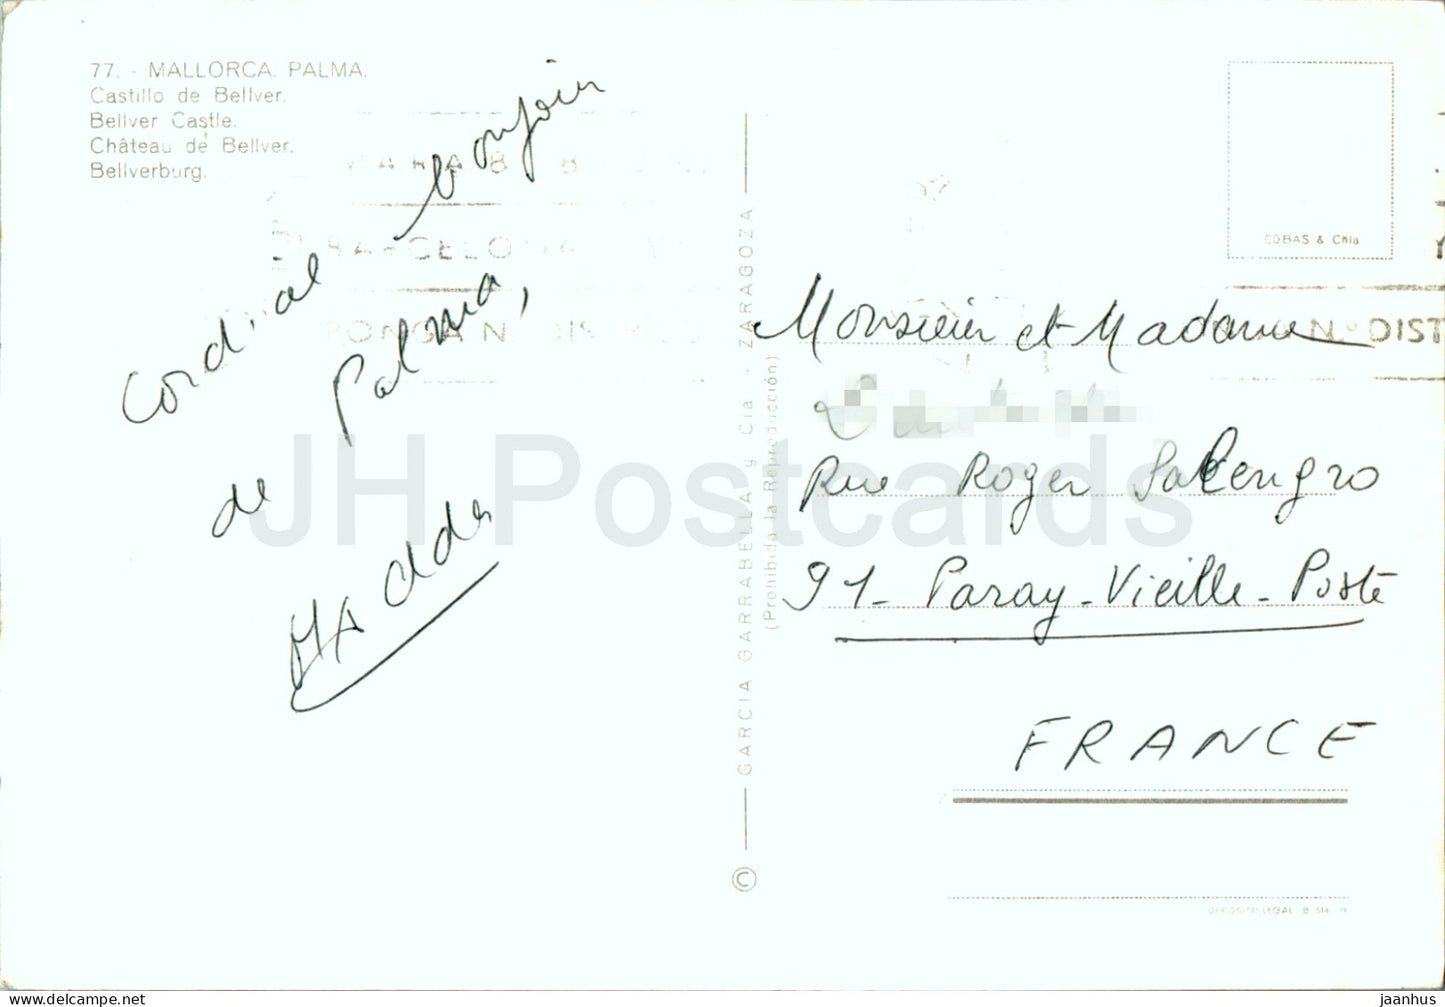 77. - MALLORCA. PALMA.
Castillo de Bellver.
Bellver Castle.
Château de Bellver.
Bellverburg.
Cordial bonjour
de Palma,
BARCELONA
PONGA Nº DIS
GARCIA GARRABELLA y Cia. - ZARAGOZA
(Prohibida la Reproducción)
©
COBAS & Chía
Nº DIST
Monsieur et Madame
Rue Roger Salengro
91 - Paray-Vieille-Poste
FRANCE
DEPOSITO LEGAL B
JH Postcards
jaanhus
delcampe.net